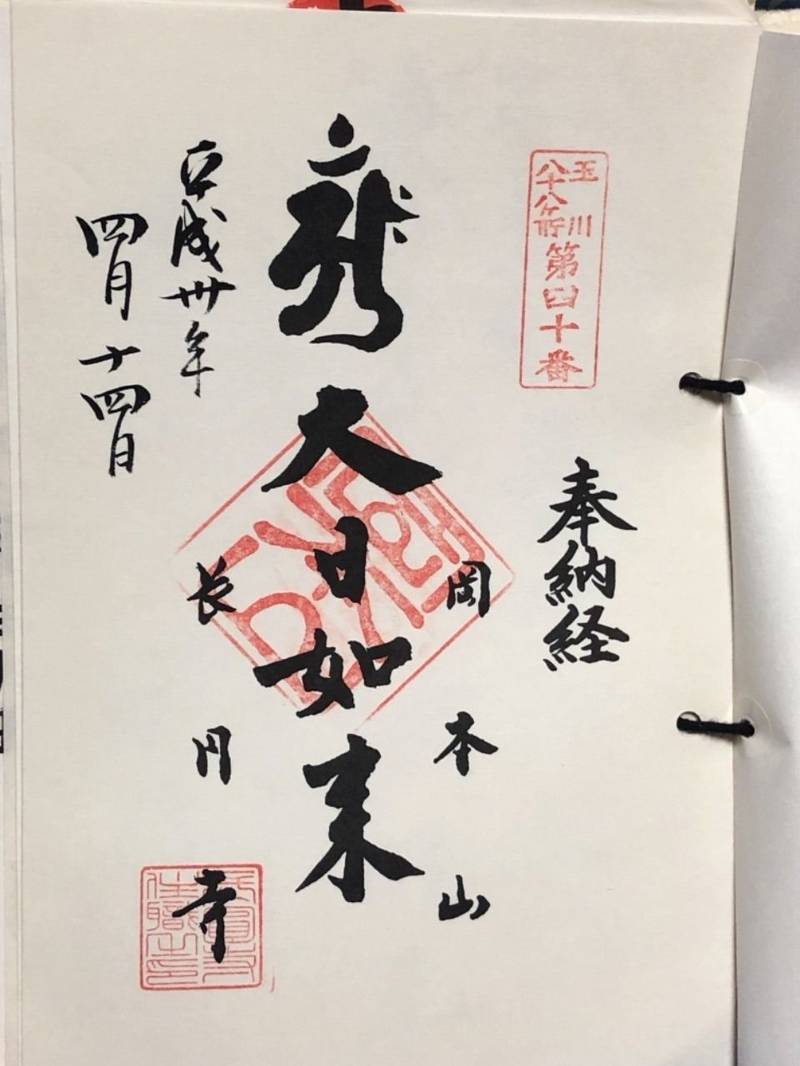 玉川
八十八ヶ所
第四十番
奉納経
岡本山
大日如来
長円寺
長圓寺
住職之印
平成卅年
四月十四日